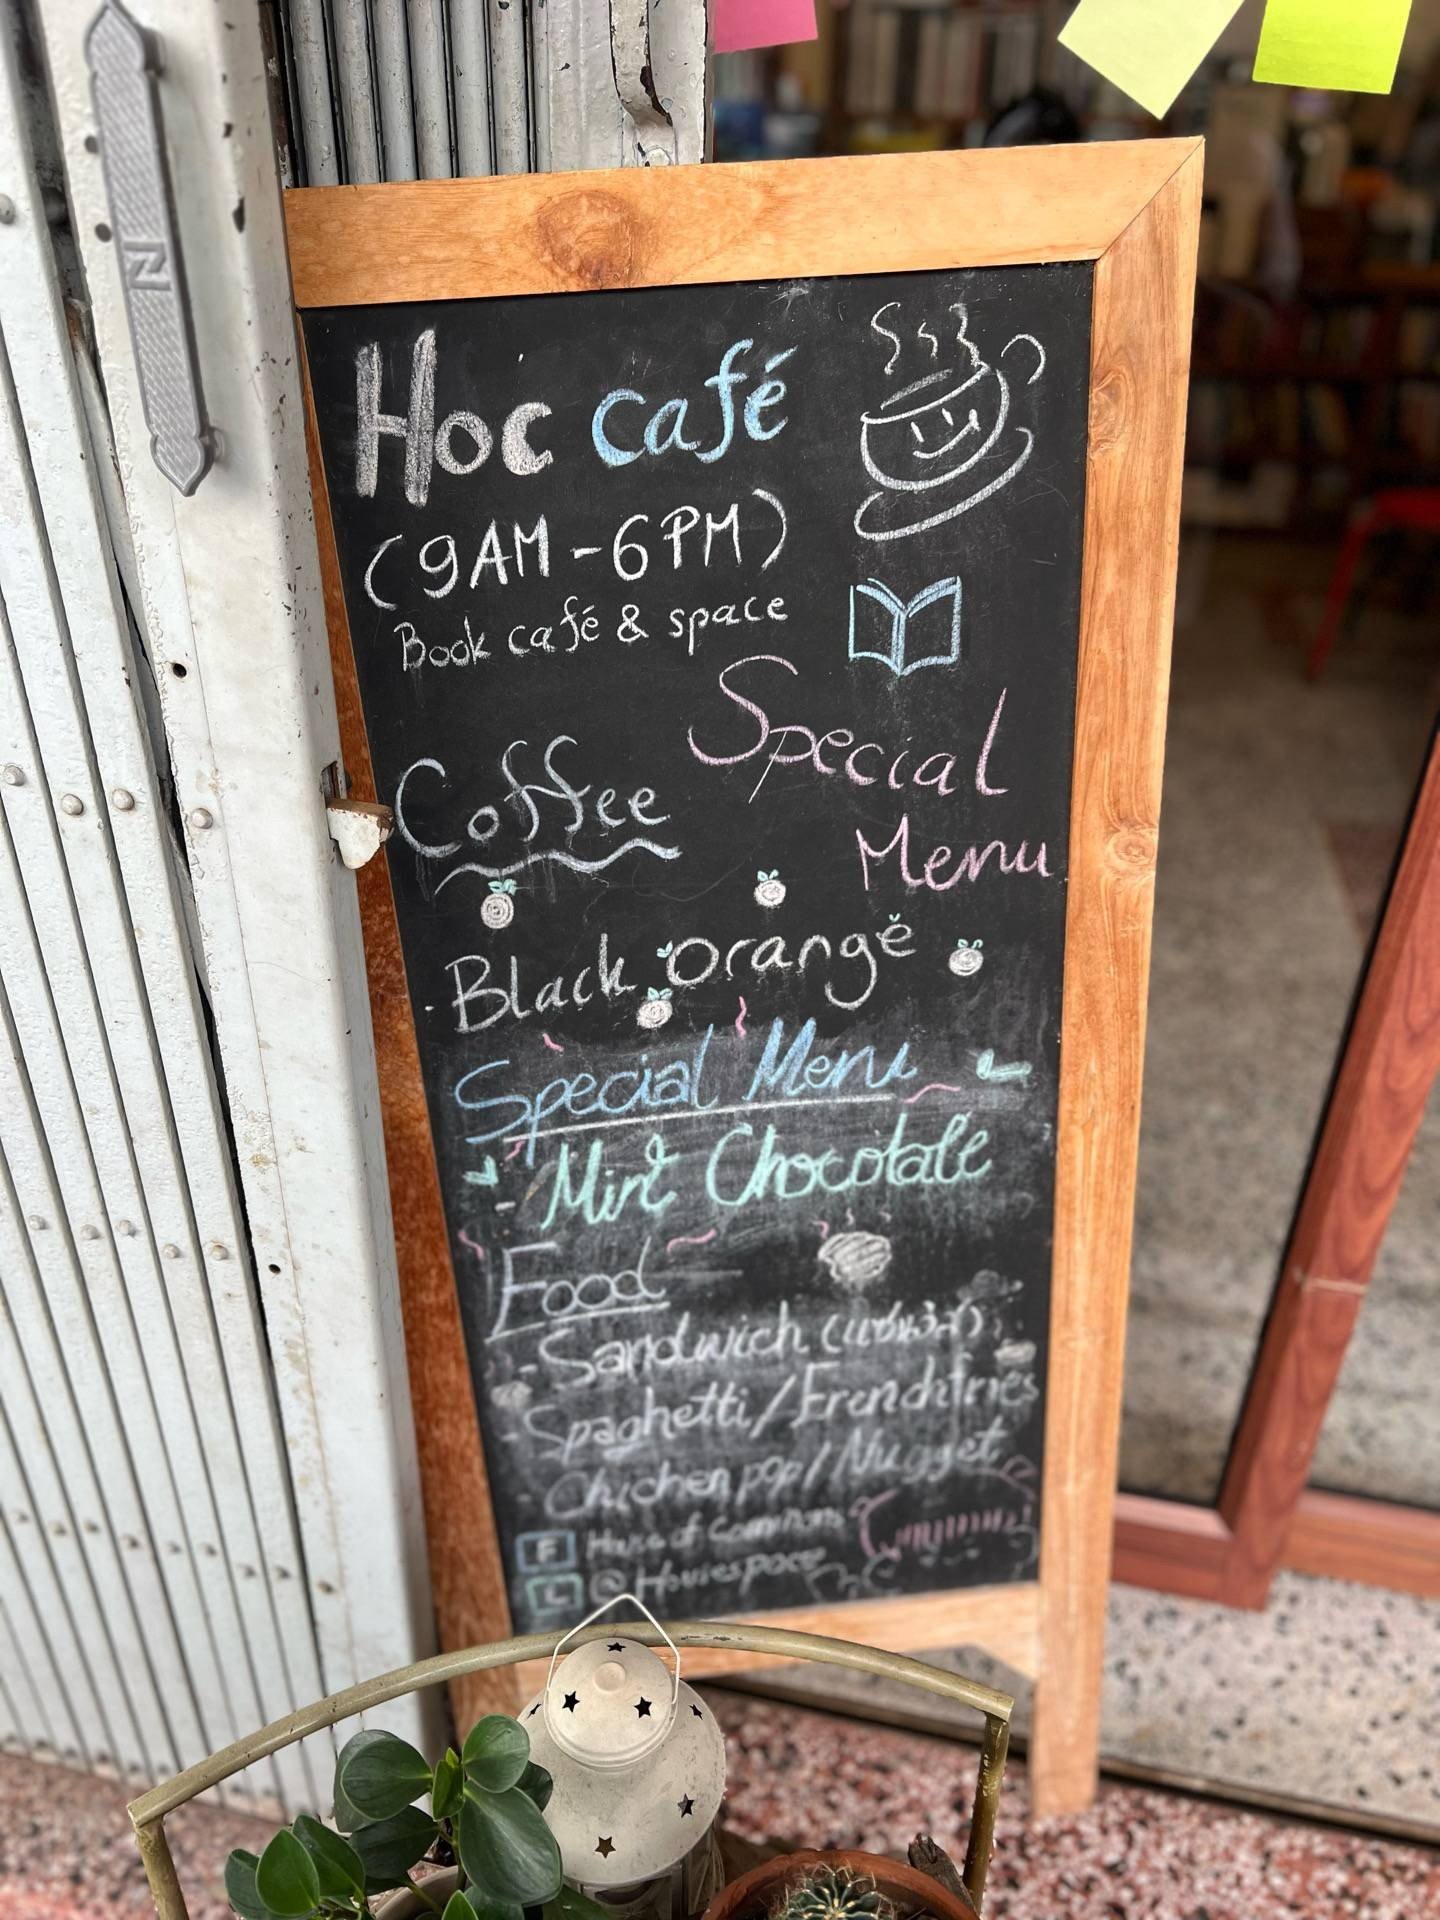 Hoc café
(9AM-6PM)
Book café & space
Special
Menu
Coffee
Black orange
Special Menu
- Mint Chocolate
Food
- Sandwich
- Spaghetti/Frenchfries
- Chicken pop/Nugget
F House of Commons
L @Housespace
N